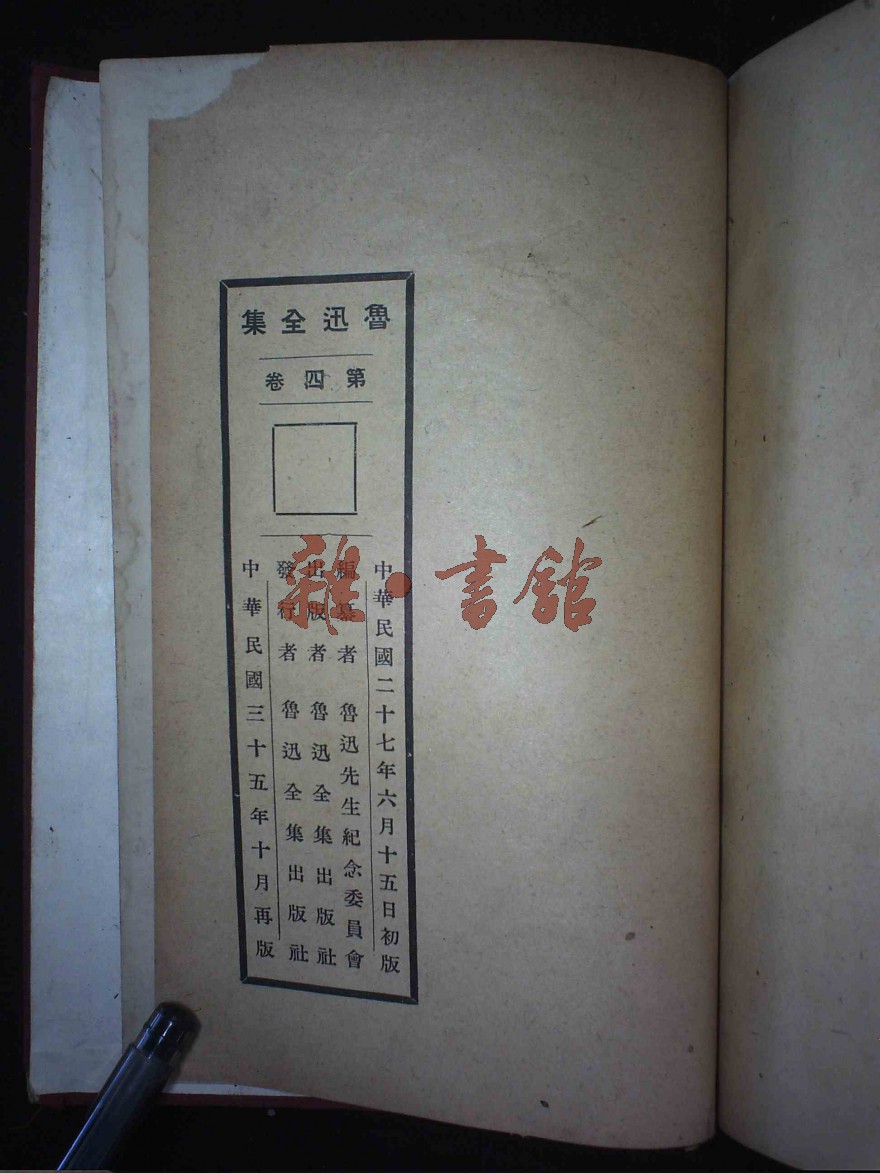 魯迅全集
第四卷
中華民國二十七年六月十五日初版
編纂者 魯迅先生紀念委員會
出版者 魯迅全集出版社
發行者 魯迅全集出版社
中華民國三十五年十月再版
雜·書館